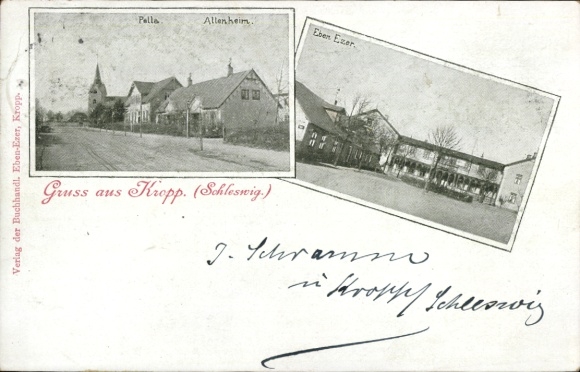 Pella Altenheim.
Eben Ezer.
Gruss aus Kropp. (Schleswig.)
Verlag der Buchhandl. Eben-Ezer, Kropp.
J. Schramm
Kropp Schleswig